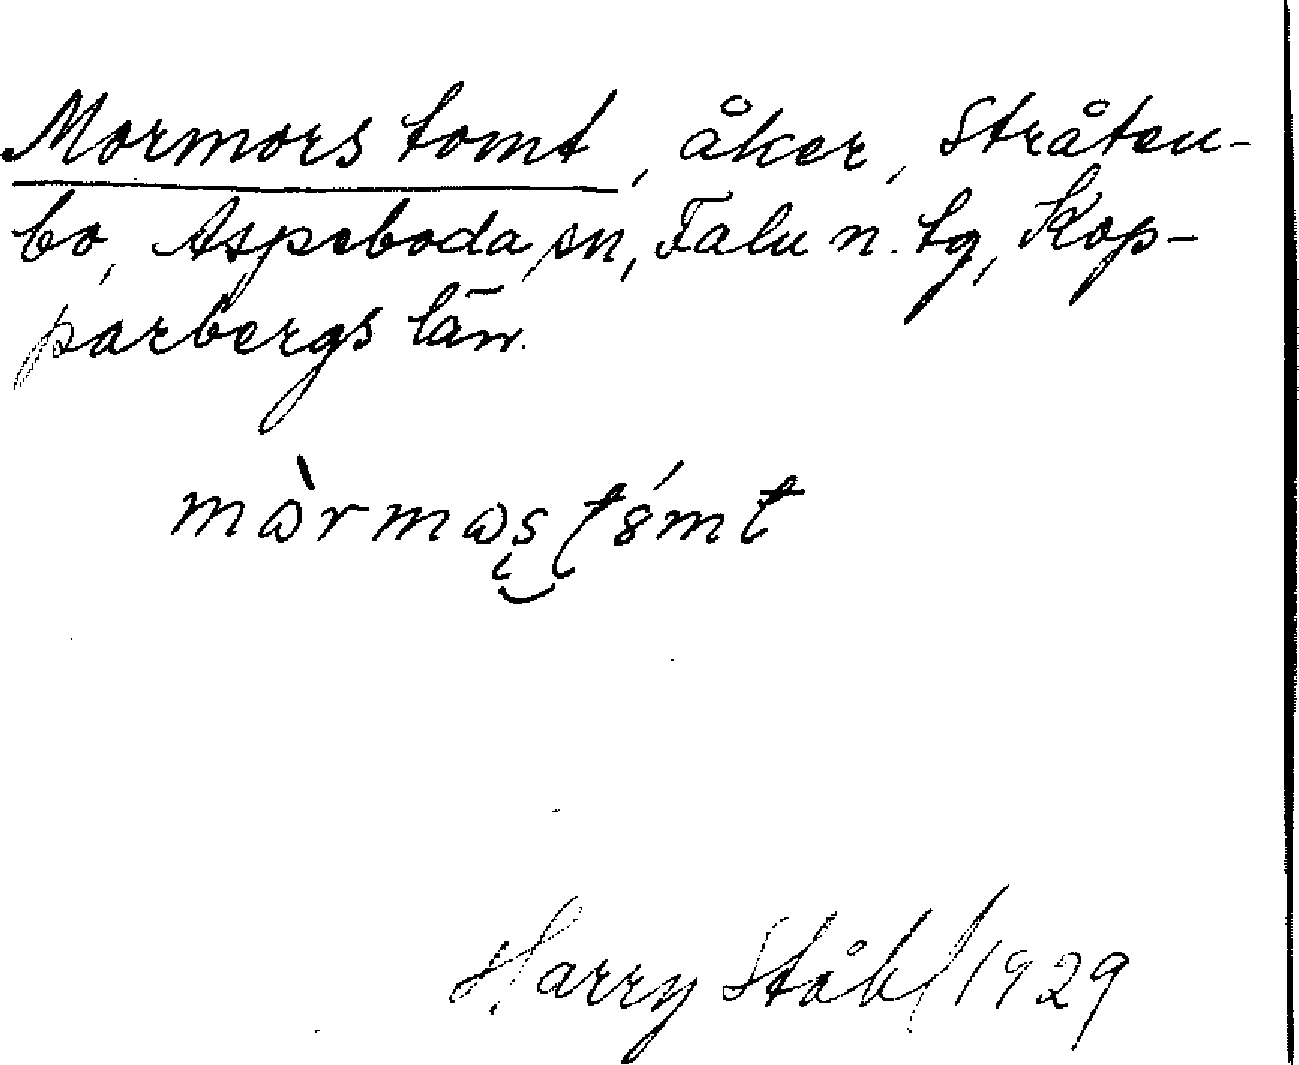 Mormors tomt, åker, Stråten-
bo, Aspeboda sn, Falu n. tg, Kop-
parbergs län.
mὼrmωş tȣ́mt
Harry Ståhl 1929